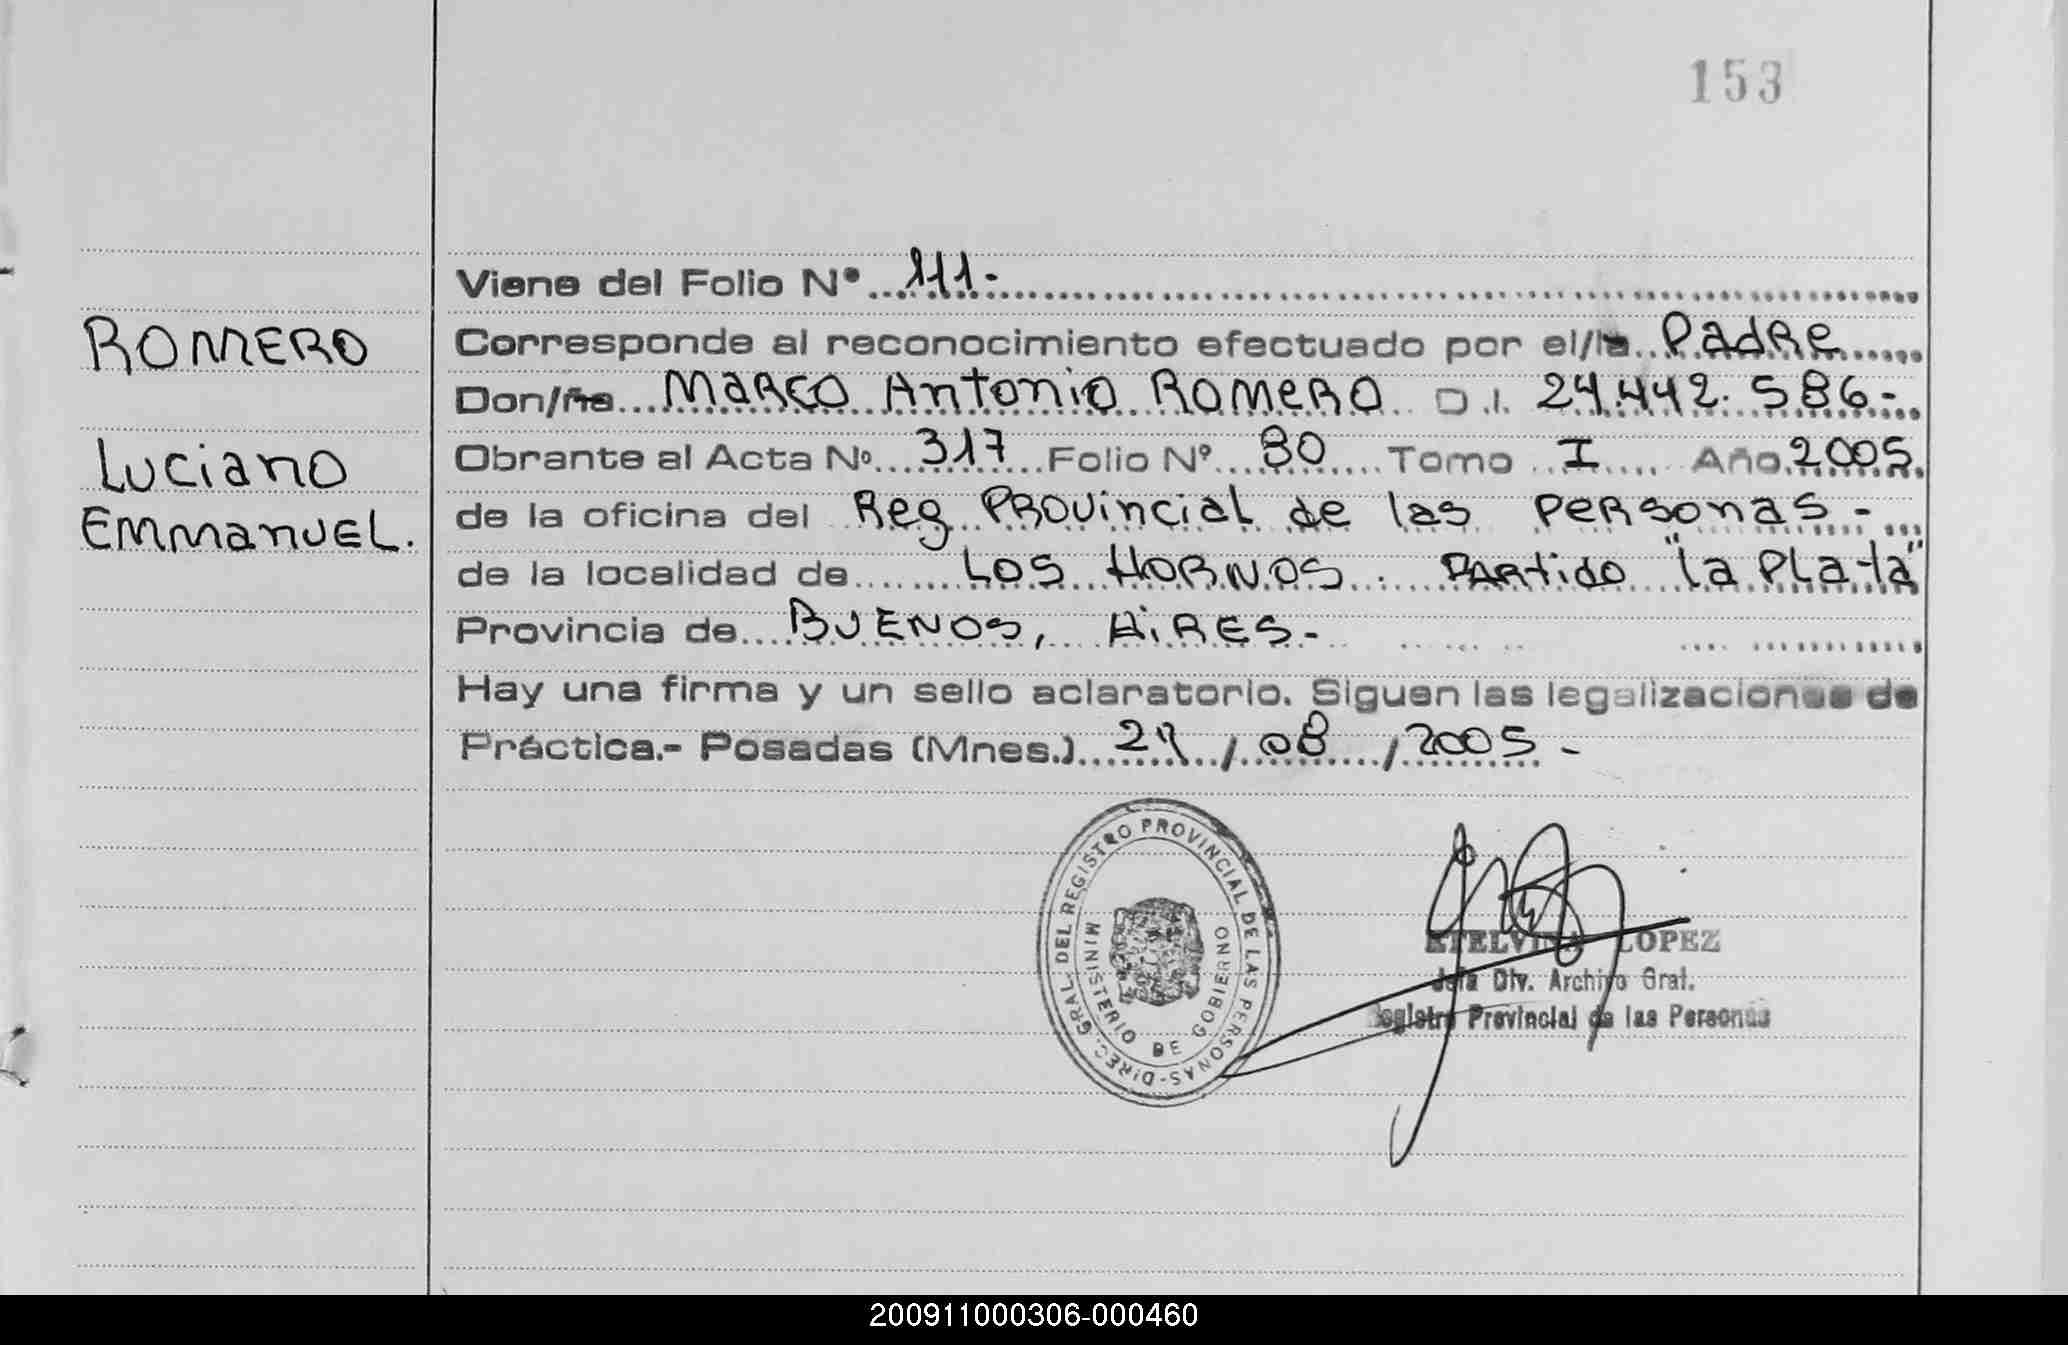 153
Viene del Folio Nº 111.-
ROMERO
Corresponde al reconocimiento efectuado por el/la Padre
Don/ña Marco Antonio Romero D.I. 24.442.586-
Luciano
Obrante al Acta Nº 317 Folio Nº 80 Tomo I Año 2005
Emmanuel.
de la oficina del Reg Provincial de las Personas-
de la localidad de Los Hornos. Partido "la Plata"
Provincia de Buenos, Aires-
Hay una firma y un sello aclaratorio. Siguen las legalizaciones de
Práctica.- Posadas (Mnes.) /08/2005-
DIREC. GRAL. DEL REGISTRO PROVINCIAL DE LAS PERSONAS-
MINISTERIO DE GOBIERNO
ETELVINA LOPEZ
Jefa Div. Archivo Gral.
Registro Provincial de las Personas
200911000306-000460